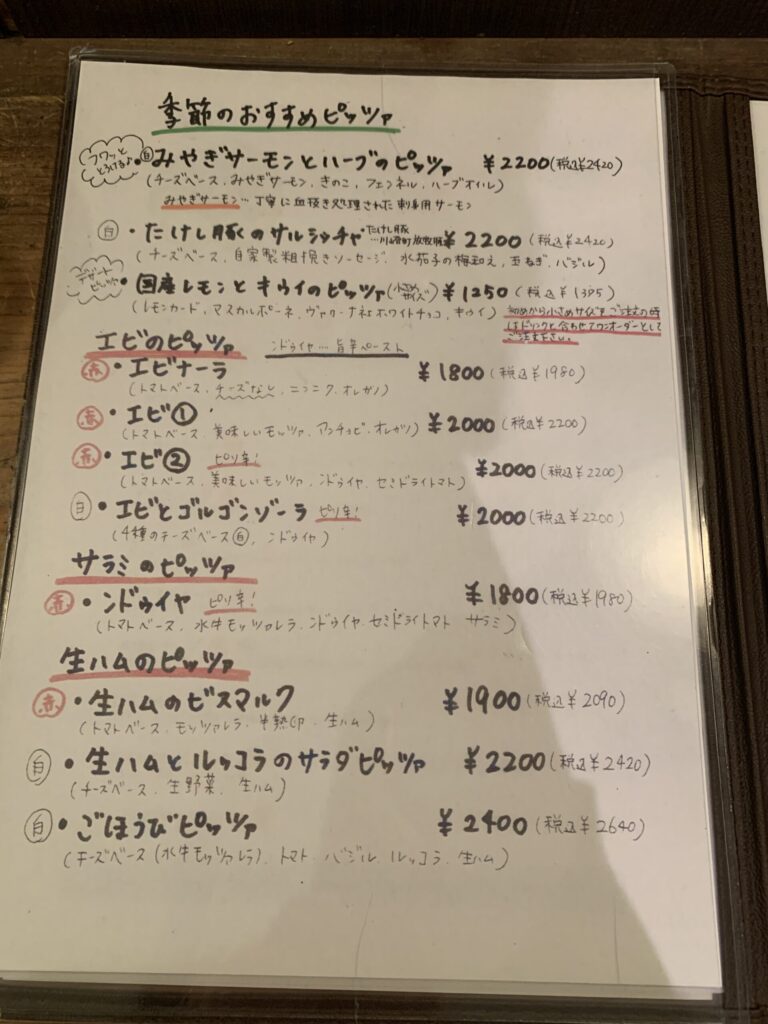 季節のおすすめピッツァ
フワッととろける♪
白・みやぎサーモンとハーブのピッツァ ¥2200(税込¥2420)
(チーズベース、みやぎサーモン、きのこ、フェンネル、ハーブオイル)
みやぎサーモン…丁寧に血抜き処理された刺身用サーモン
白・たけし豚のサルシッチャ たけし豚 ¥2200(税込¥2420)
(チーズベース、自家製粗挽きソーセージ、水茄子の梅和え、玉ねぎ、バジル)
デザートピッツァ
・国産レモンとキウイのピッツァ(小さめサイズ) ¥1250(税込¥1375)
(レモンカード、マスカルポーネ、ヴァローナ社ホワイトチョコ、キウイ)
初めから小さめサイズをご注文の時
はドリンクと合わせてワンオーダーとして
ご注文下さい。
エビのピッツァ ンドゥイヤ…旨辛ペースト
赤・エビナーラ ¥1800(税込¥1980)
(トマトベース、チーズなし、ニンニク、オレガノ)
赤・エビ① ¥2000(税込¥2200)
(トマトベース、美味しいモッツァ、アンチョビ、オレガノ)
赤・エビ② ピリ辛! ¥2000(税込¥2200)
(トマトベース、美味しいモッツァ、ンドゥイヤ、セミドライトマト)
白・エビとゴルゴンゾーラ ピリ辛! ¥2000(税込¥2200)
(4種のチーズベース白、ンドゥイヤ)
サラミのピッツァ
赤・ンドゥイヤ ピリ辛! ¥1800(税込¥1980)
(トマトベース、水牛モッツァレラ、ンドゥイヤ、セミドライトマト サラミ)
生ハムのピッツァ
赤・生ハムのビスマルク ¥1900(税込¥2090)
(トマトベース、モッツァレラ、半熟卵、生ハム)
白・生ハムとルッコラのサラダピッツァ ¥2200(税込¥2420)
(チーズベース、生野菜、生ハム)
白・ごほうびピッツァ ¥2400(税込¥2640)
(チーズベース(水牛モッツァレラ)、トマト、バジル、ルッコラ、生ハム)